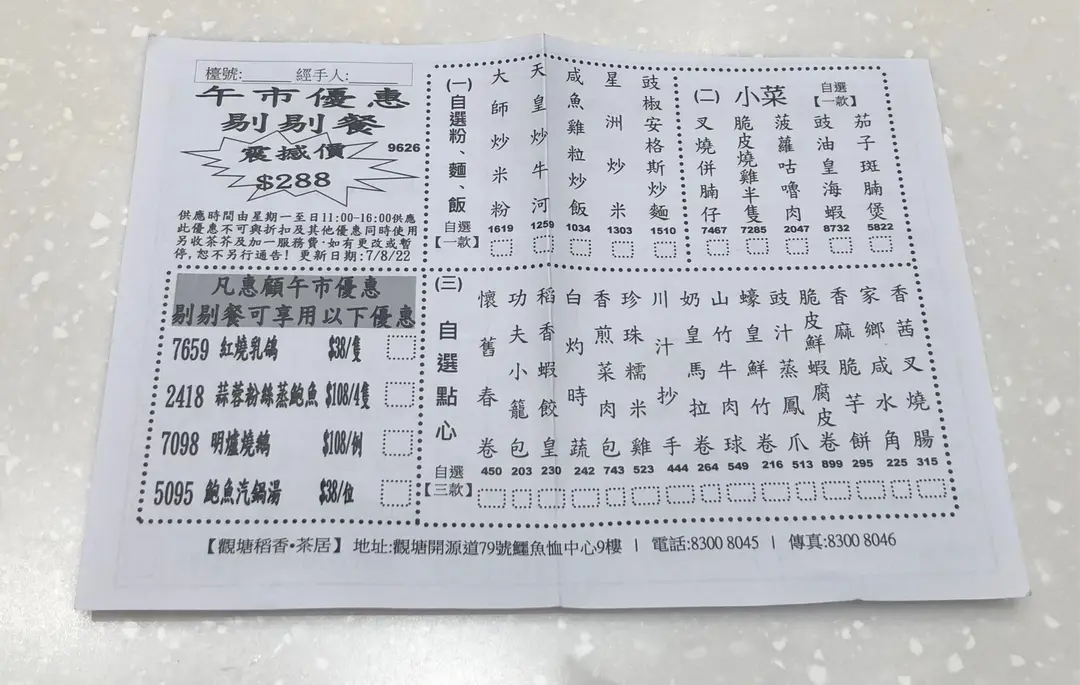 檯號:_____ 經手人:_____
午市優惠
剔剔餐
震撼價
9626
$288
供應時間由星期一至日11:00-16:00供應
此優惠不可與折扣及其他優惠同時使用
另收茶芥及加一服務費·如有更改或暫
停,恕不另行通告! 更新日期:7/8/22
凡惠顧午市優惠
剔剔餐可享用以下優惠
7659 紅燒乳鴿 $38/隻
2418 蒜蓉粉絲蒸鮑魚 $108/4隻
7098 明爐燒鵝 $108/例
5095 鮑魚汽鍋湯 $38/位
(一)自選粉、麵、飯
自選
【一款】
大師炒米粉 1619
天皇炒牛河 1259
咸魚雞粒炒飯 1034
星洲炒米 1303
豉椒安格斯炒麵 1510
(二) 小菜 自選
【一款】
叉燒併腩仔 7467
脆皮燒雞半隻 7285
菠蘿咕嚕肉 2047
豉油皇海蝦 8732
茄子斑腩煲 5822
(三)自選點心
自選
【三款】
懷舊春卷 450
功夫小籠包 203
稻香蝦餃皇 230
白灼時蔬 242
香煎菜肉包 743
珍珠糯米雞 523
川汁抄手 444
奶皇馬拉卷 264
山竹牛肉球 549
蠔皇鮮竹卷 216
豉汁蒸鳳爪 513
脆皮鮮蝦腐皮卷 899
香麻脆芋餅 295
家鄉咸水角 225
香茜叉燒腸 315
【觀塘稻香•茶居】 地址:觀塘開源道79號鱷魚恤中心9樓 | 電話:8300 8045 | 傳真:8300 8046